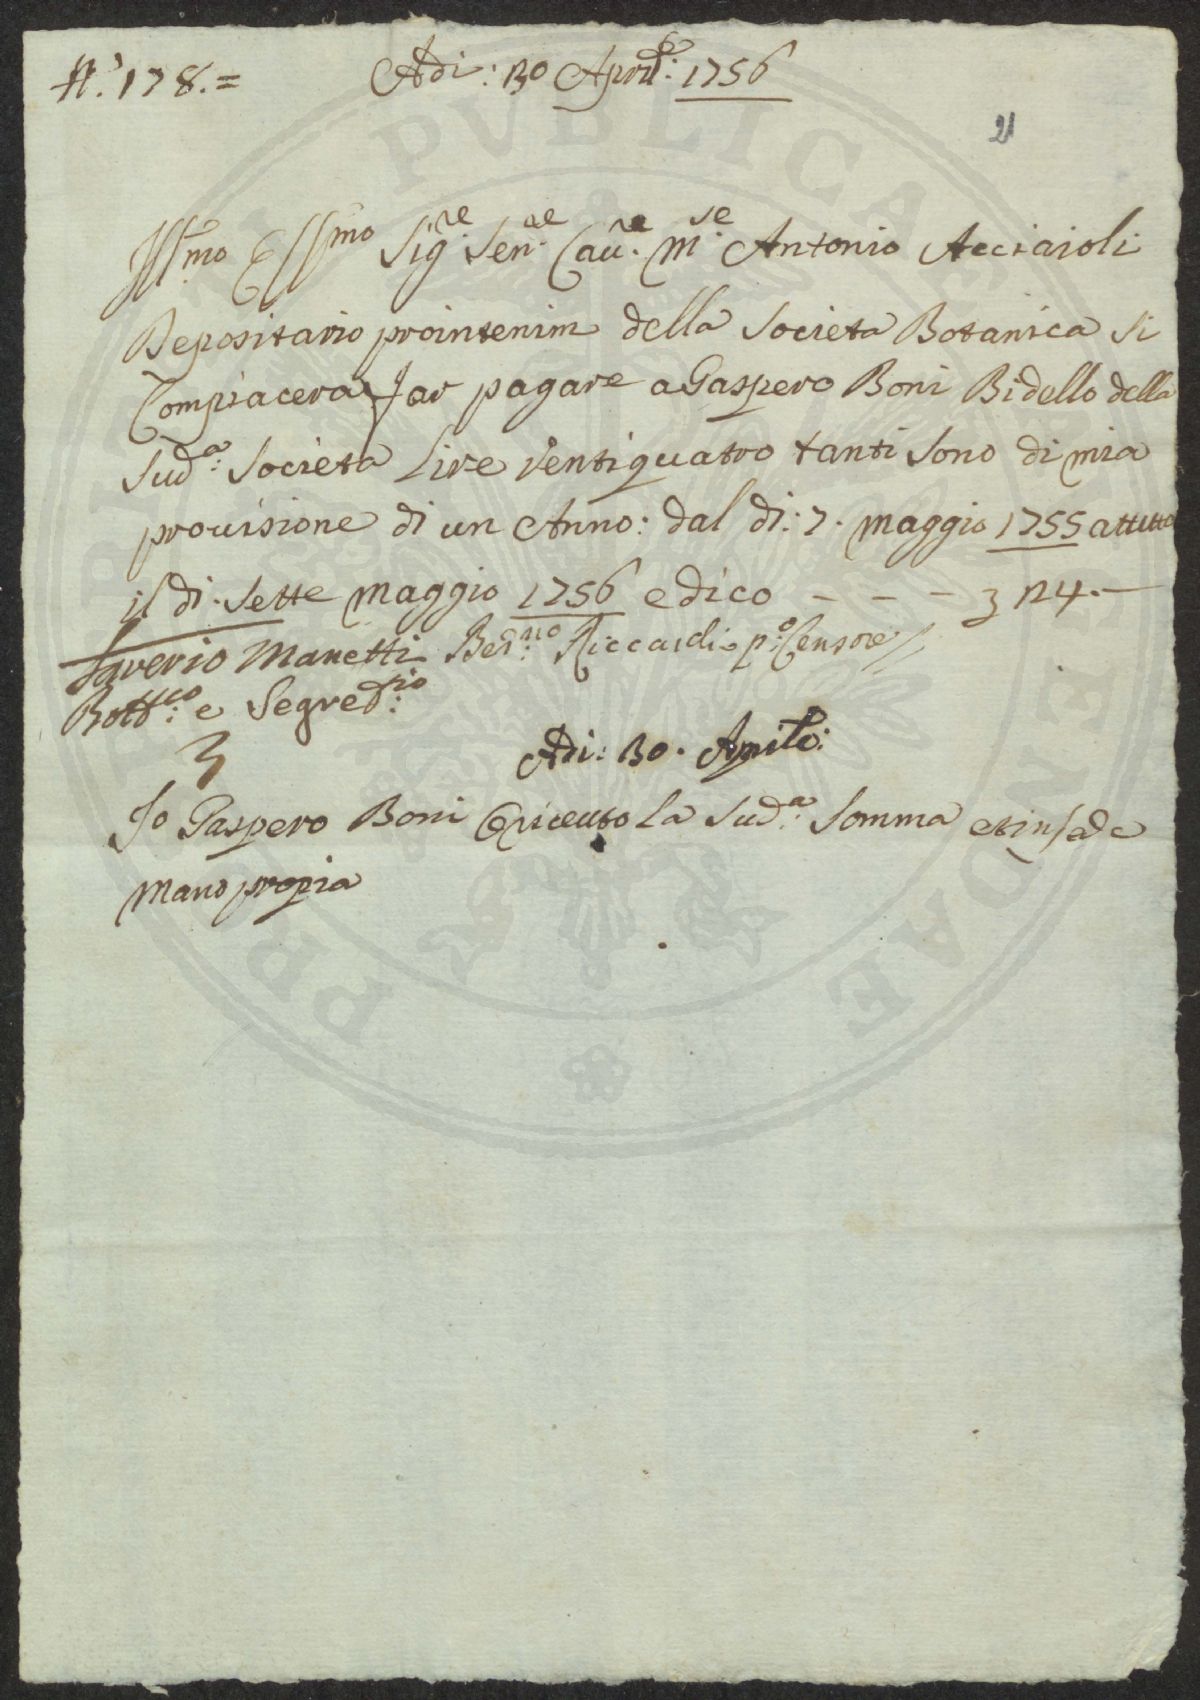 N.° 178.=
Adi: 30 Aprile: 1756
21
Ill:mo Ecc:mo Sig:re Sen:re Cav:re M:se Antonio Acciaioli
Depositario prointerim della Societa Botanica si
Compiacera far pagare a Gaspero Boni Bidello della
Sud:a Societa Lire Ventiquatro tanti sono di mia
provisione di un Anno: dal di: 7. Maggio 1755 attutto
il di. Sette Maggio 1756 e dico - - - 24.—
Saverio Manetti
Ber:no Riccardi p:o Censore
Bott:co e Segret:rio
Adi: 30. Aprile:
Io Gaspero Boni O riceuto la Sud:a Somma et in fede
Mano propia
PUBLICAE